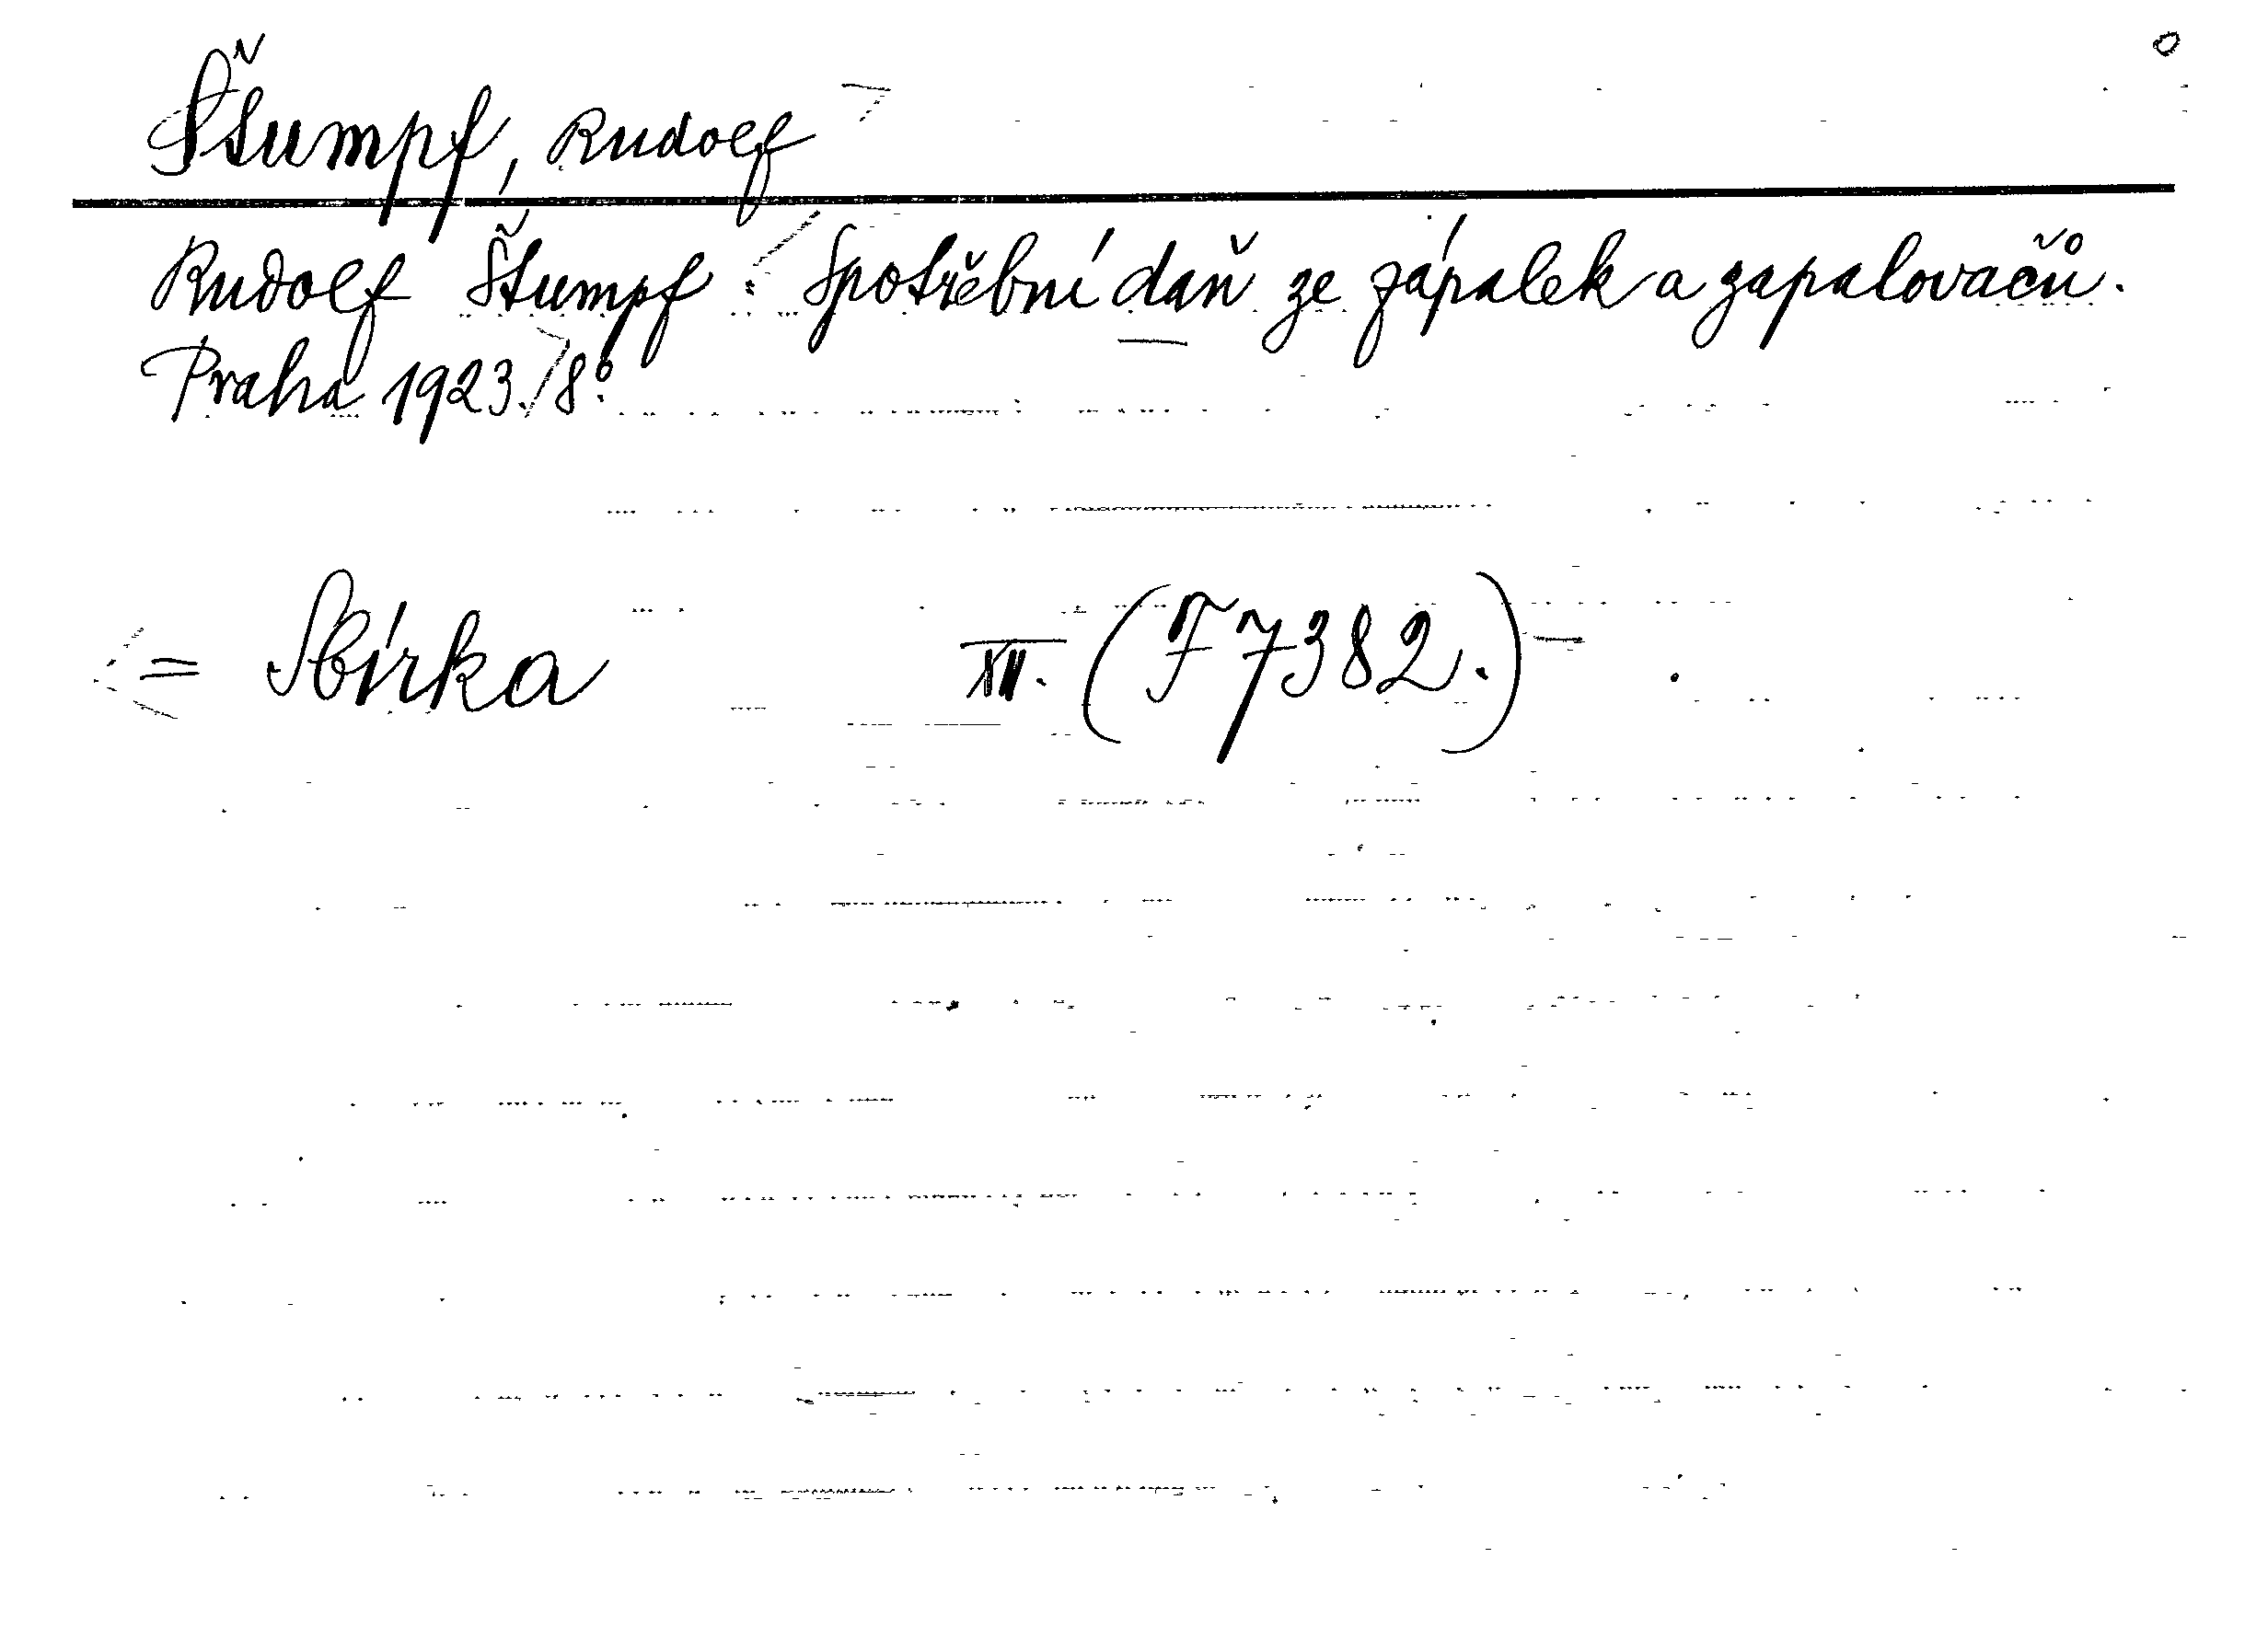 Štumpf, Rudolf
Rudolf Štumpf: Spotřební daň ze zápalek a zapalovačů.
Praha 1923. 8°.
= Sbírka XII. (F 7382.)